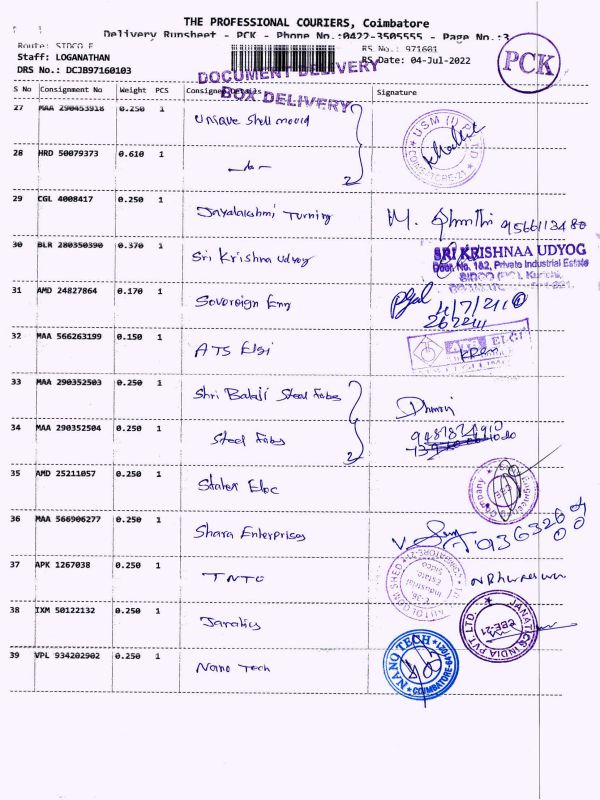 THE PROFESSIONAL COURIERS, Coimbatore
Delivery Runsheet - PCK - Phone No.:0422-3505555 - Page No.:3
Route: SIDCO E
RS No.: 971601
Staff: LOGANATHAN
RS Date: 04-Jul-2022
DRS No.: DCJB97160103
PCK
DOCUMENT DELIVERY
BOX DELIVERY
S No Consignment No Weight PCS Consignee Details Signature
27 MAA 290453918 0.250 1 Unique Shell mould
USM (I) P LTD COIMBATORE-21
28 HRD 50079373 0.610 1
2
29 CGL 4008417 0.250 1 Jayalakshmi Turning
9566113480
30 BLR 280350390 0.370 1 Sri Krishna Udyog
SRI KRISHNAA UDYOG
Door. No. 1&2, Private Industrial Estate
31 AMD 24827864 0.170 1 Sovereign Eng
32 MAA 566263199 0.150 1 ATS Elgi
ELGI
33 MAA 290352503 0.250 1 Shri Balaji Steel Fabs
34 MAA 290352504 0.250 1 Steel Fabs
2
35 AMD 25211057 0.250 1
36 MAA 566906277 0.250 1 Shara Enterprises
37 APK 1267038 0.250 1
38 IXM 50122132 0.250 1 Janatics
JANATICS INDIA PVT. LTD.
CBE-21
39 VPL 934202902 0.250 1 Nano Tech
NANO TECH
COIMBATORE-641021